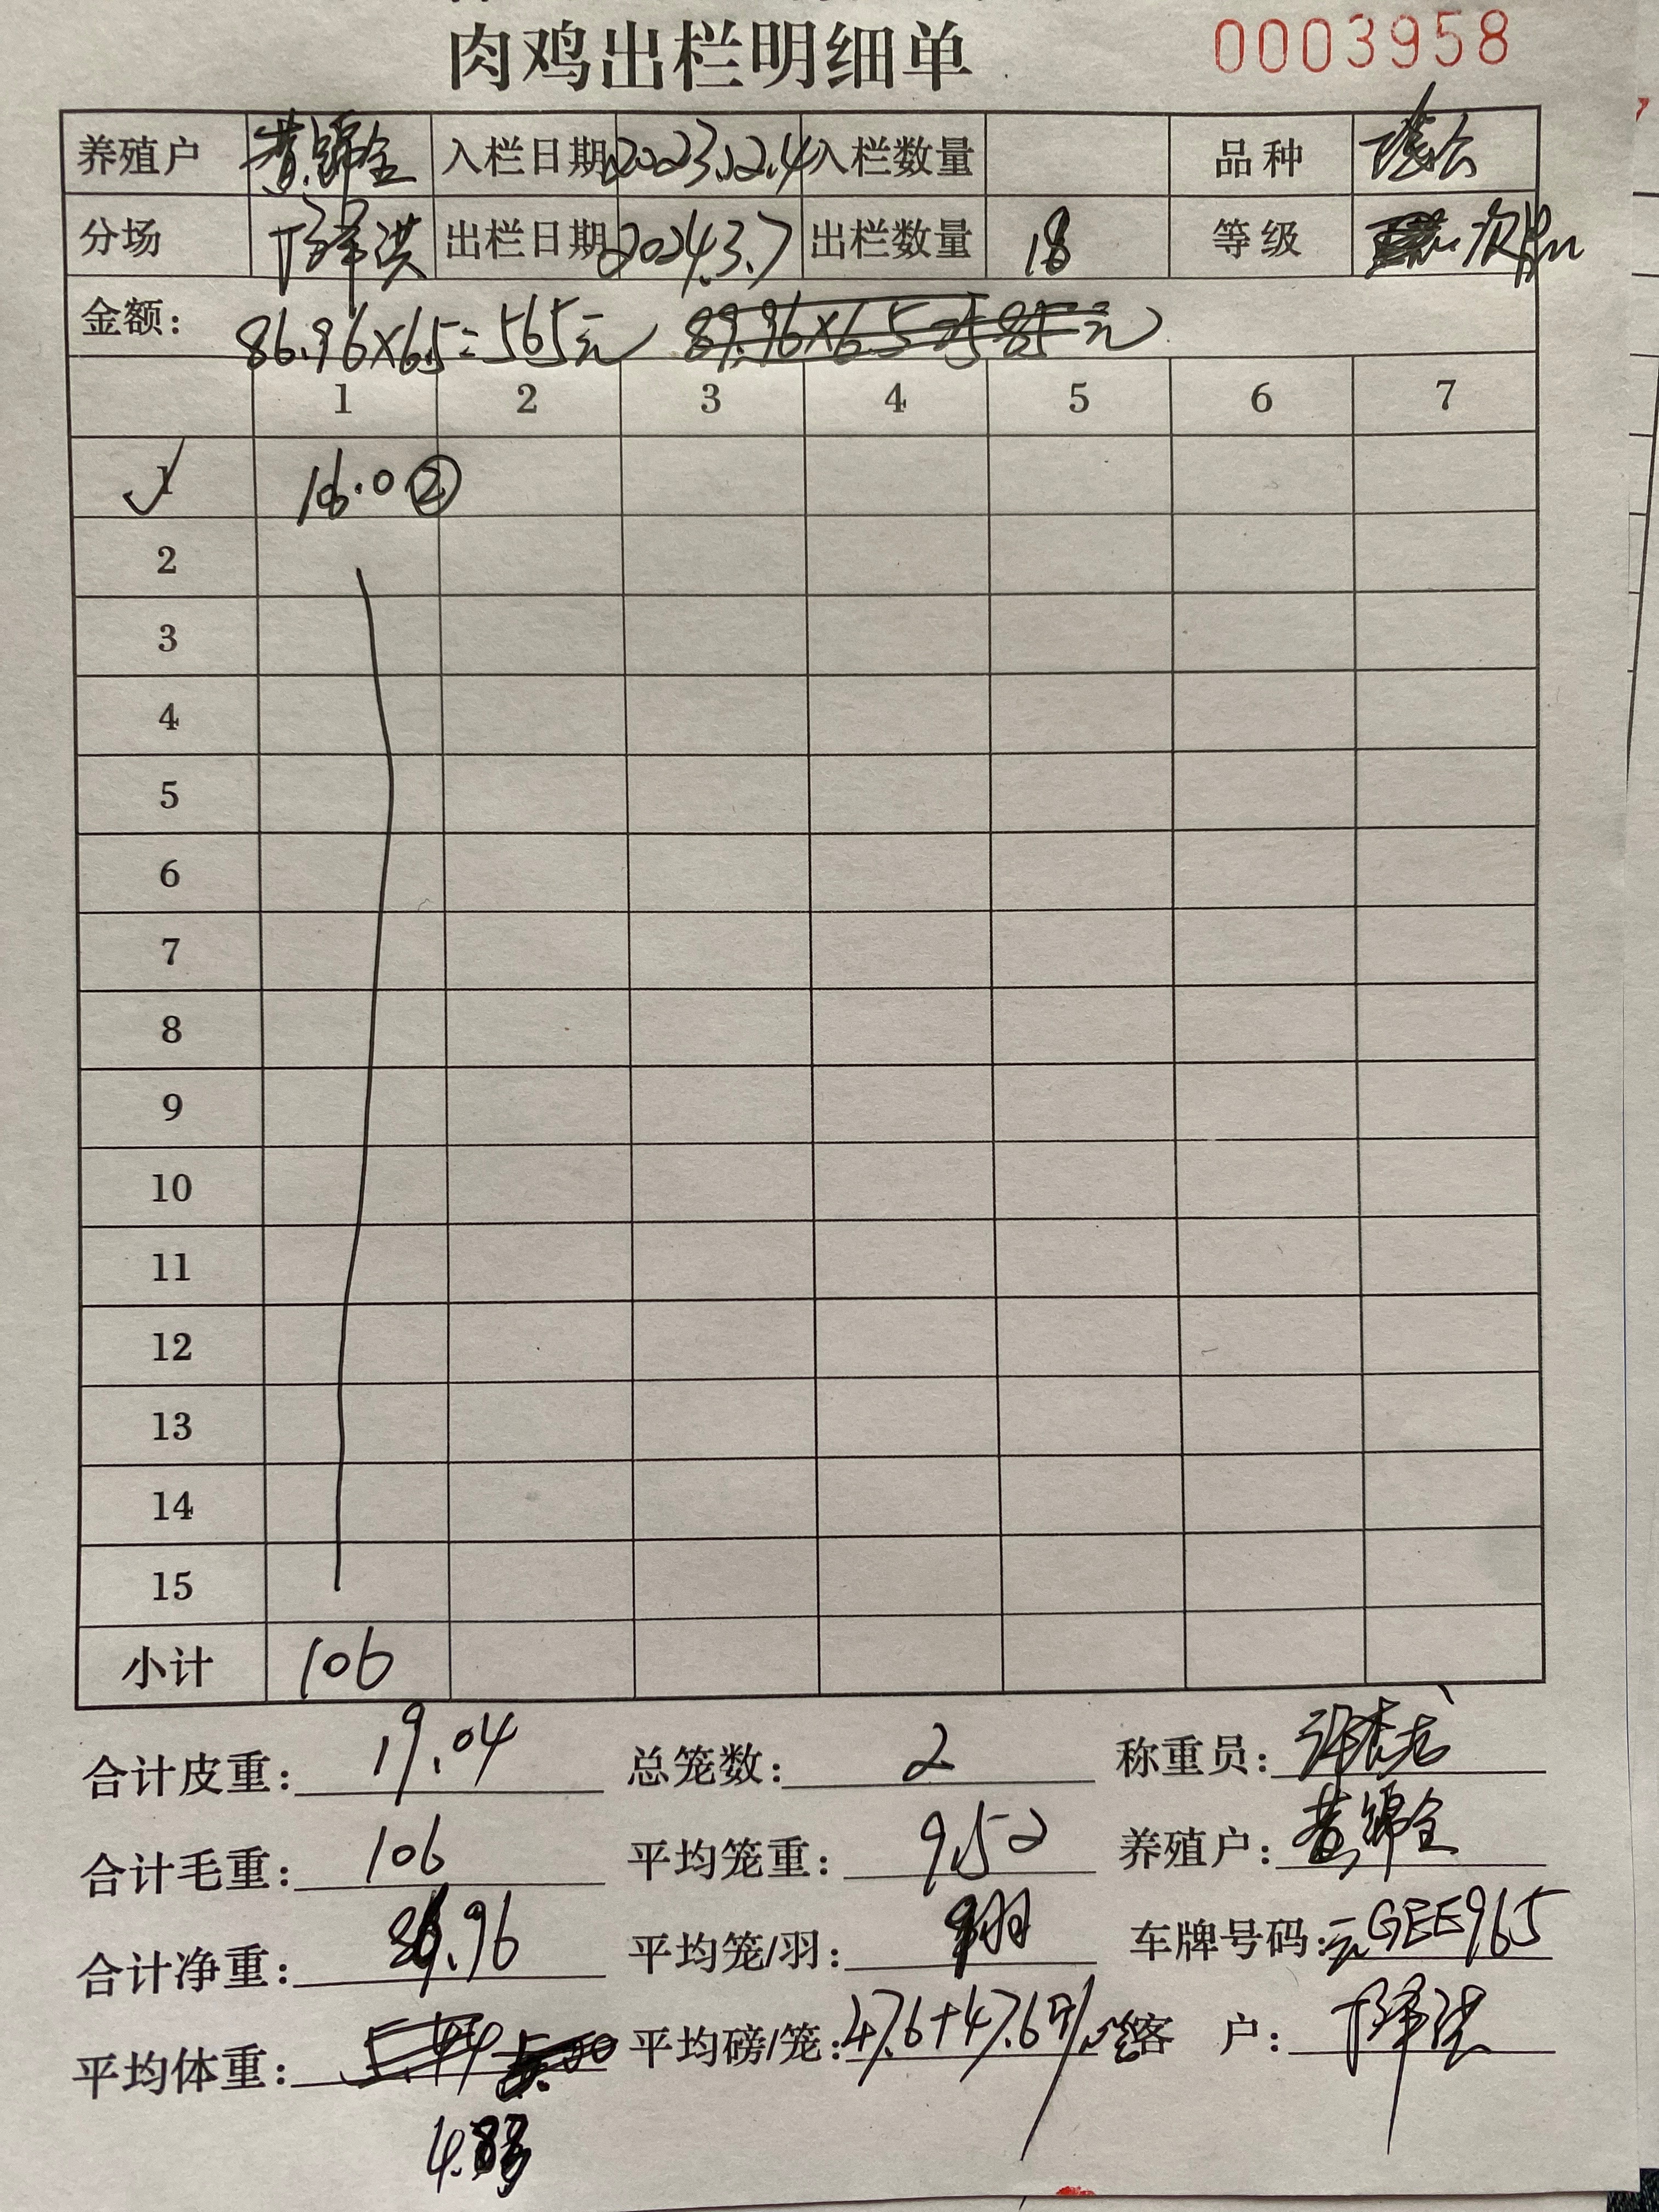 肉鸡出栏明细单 0003958
养殖户 黄锦全 入栏日期 2023.12.4 入栏数量 品种
分场 出栏日期 2024.3.7 出栏数量 18 等级
金额: 86.96×6.5=565元 89.96×6.5=585元
1 2 3 4 5 6 7
1 106.0 ②
2
3
4
5
6
7
8
9
10
11
12
13
14
15
小计 106
合计皮重: 19.04 总笼数: 2 称重员:
合计毛重: 106 平均笼重: 9.52 养殖户: 黄锦全
合计净重: 86.96 平均笼/羽: 9羽 车牌号码: 云GEE965
平均体重: 平均磅/笼: 47.6+47.6 客 户:
4.83